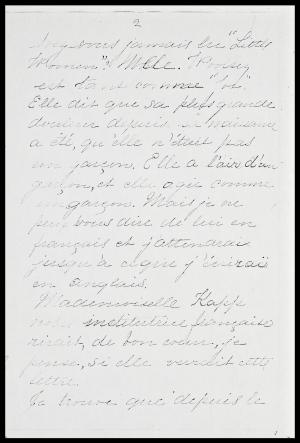 2
Avez-vous jamais lu "Little
Women"? Mlle. Woolsey
est tant comme "Jo".
Elle dit que sa plus grande
douleur depuis sa naissance
a été, qu'elle n'était pas
un garçon. Elle a l'air d'un
garçon, et elle agie comme
un garçon. Mais je ne
peux vous dire de lui en
français et j'attendrai
jusqu'à ce que j'écrirai
en anglais.
Mademoiselle Kapp
notre institutrice française
rirait, de bon coeur, je
pense, si elle verdit cette
lettre.
Je trouve que depuis le